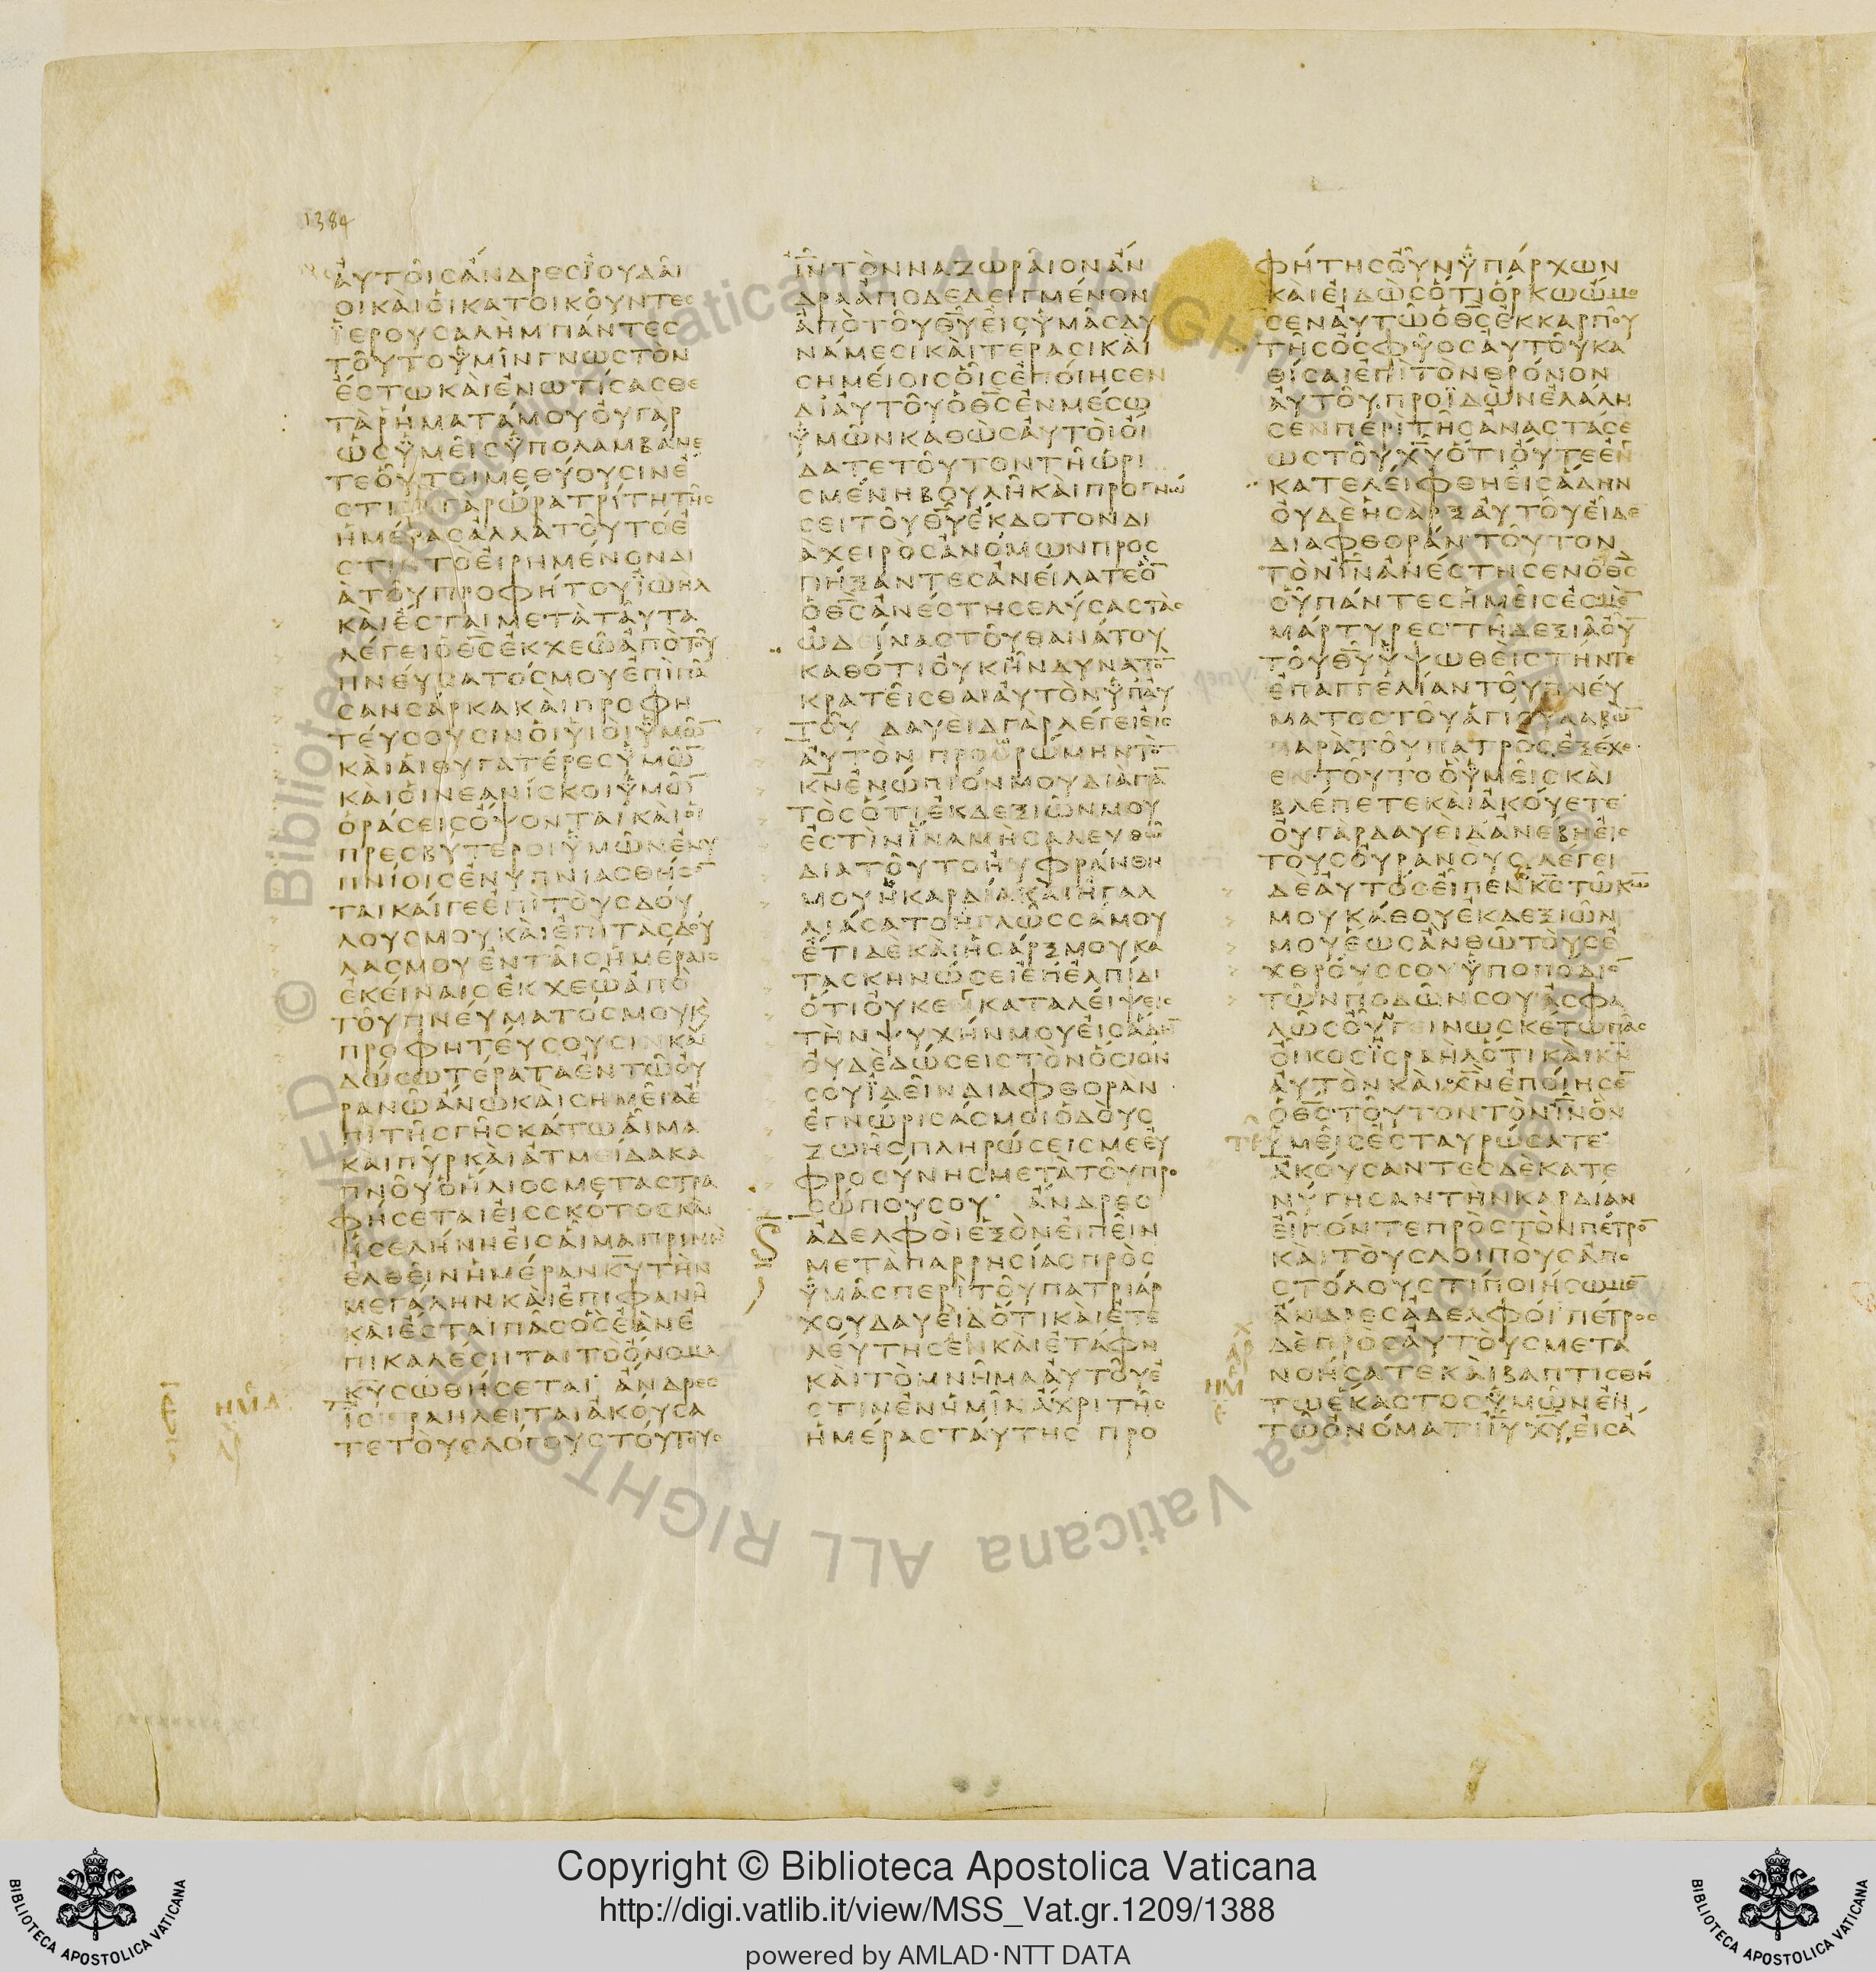 1384
ἀυτοῖσἄνδρεσϊουδᾶι
οικαὶὁικατοικοῦντεσ
ϊερουσαλημπάντεσ
τοῦτοὑμῖνγνωστὸν
ἔστωκαὶἐνωτίσασθε
τὰρήματάμουὀυγὰρ
ὡσὑμεῖσὑπολαμβάνε
τεοὗτοιμεθύουσινἔ
στινγαρὥρατρίτητῆσ
ἡμέρασἀλλὰτοῦτόἐ
στιντὸἐιρημένονδι
ὰτοῦπροφήτουϊωηλ
κὰιἔσταιμετὰτᾶυτα
λέγειὁθ̅σ̅ἐκχεῶἀπὸτοῦ
πνέυματόσμουἐπὶπᾶ
σανσάρκακὰιπροφη
τέυσουσινὁιὑιὸιὑμῶ̅
κὰιἁιθυγατέρεσὑμῶ̅
καιὁινεανίσκοιὑμῶ̅
ὁράσεισὄψονταικὰιὁι
πρεσβυτεροιὑμῶνἐνυ
πνίοισἐνυπνιασθήσο̅
ταικάιγεἐπὶτὸυσδόυ
λουσμουκὰιἐπιτασδόυ
λασμουἐνταῖσἡμέραισ
ἐκέιναισἐκχεῶἀπὸ
τοῦπνέυματόσμουκὰι
προφητέυσουσινκὰι
δώσωτέραταἐντῶὀυ
ρανωἄνωκαισημεῖαἐ
πὶτῆσγῆσκάτωἇιμα
κὰιπῦρκὰιἀτμείδακα
πνοῦὁἥλιοσμεταστρα
φήσεταιἐισσκότοσκὰι
ἡσελήνηἐισἇιμαπρινὴ
ἐλθεῖνἡμέρανκ̅υ̅τὴν
μεγάληνκὰιἐπιφανῆ
κὰιἔσταιπᾶσὃσἐὰνἐ
πικαλέσηταιτοὄνομα
κ̅υ̅σωθήσεται ἄνδρεσ
ϊσραηλειταιἀκούσα
τετὸυσλόγουστόυτουσ
ι̅ν̅τὸνναζωρᾶιονἄν
δραἀποδεδειγμένον
ἀπὸτοῦθ̅υ̅ἐισὑμᾶσδυ
νάμεσικὰιτέρασικὰι
σημέιοισὁῖσἐπόιησεν
διἀυτοῦὁθ̅σ̅ἐνμέσω
ὑμῶνκαθὼσἀυτὸιὀί
δατετοῦτοντῆὡρι
σμένηβουλῆκὰιπρογνώ
σειτοῦθ̅υ̅ἔκδοτονδι
ὰχειρὸσἀνόμωνπροσ
πήξαντεσἀνείλατεὃ̅
ὁθ̅σ̅ἀνέστησελύσαστὰσ
ὠδεῖναστοῦθανάτου
καθότιὀυκἦνδυνατὸ̅
κρατεῖσθαιἀυτὸνὑπἀυ
τοῦ δαυεὶδγὰρλέγειἐισ
ἀυτὸν προορώμηντὸ̅
κ̅ν̅ἐνώπιόνμουδιαπα̅
τὸσὅτιἐκδεξιῶνμου
ἐστὶνἵναμησαλευθῶ
διατοῦτοηυφράνθη
μουἡκαρδίακὰιἠγαλ
λιάσατοἡγλῶσσάμου
ἔτιδεκὰιἡσάρξμουκα
τασκηνώσειἐπἐλπίδι
ὅτιὀυκενκαταλείψεισ
τὴνψυχήνμουἐισἅδη̅
ὀυδὲδώσειστὸνὅσιόν
σουϊδεῖνδιαφθοραν
ἐγνώρισάσμοιὁδὸυσ
ζωῆσπληρώσεισμεἐυ
φροσύνησμετὰτοῦπρο
σώπουσου ἄνδρεσ
ἀδελφὸιἐξὸνἐιπεῖν
μετὰπαρρησίασπρὸσ
ὑμᾶσπερὶτοῦπατριάρ
χουδαυεὶδὅτικὰιἐτε
λέυτησενκὰιἐτάφη
κὰιτὸμνῆμαἀυτοῦἐ
στινἐνἡμῖνἄχριτῆσ
ἡμέρασταύτησ προ
φήτησὀῦνὑπάρχων
κὰιἐιδὼσὅτιὅρκωὤμο
σενἀυτῶὁθ̅σ̅ἐκκαρποῦ
τῆσὀσφύοσἀυτοῦκα
θίσαιἐπὶτὸνθρόνον
ἀυτοῦπροϊδὼνἐλάλη
σενπερὶτῆσἀναστάσε
ωστοῦχ̅υ̅ὅτιὀύτεἐν
κατελείφθηἐισἅδην
ὀυδὲἡσαρξἀυτοῦἐῖδε
διαφθοράν τοῦτον
τὸνι̅ν̅ἀνέστησενὁθ̅σ̅
ὁῦπάντεσἡμεῖσἐσμὲ̅
μάρτυρεσ τῆδεξιᾶὀῦ̅
τοῦθ̅υ̅ὑψωθεὶστήντε
ἐπαγγελίαντοῦπνέυ
ματοστοῦἁγίουλαβὼ̅
παρὰτοῦπατροσἐξέχε
εντοῦτοὃὑμεῖσκὰι
βλέπετεκὰιἀκούετε
ὀυγὰρδαυεὶδἀνεβηἐισ
τὸυσὀυρανὸυσλέγει
δὲἀυτόσἐῖπενκ̅σ̅τῶκ̅ω̅
μουκάθουἐκδεξιῶν
μουἕωσἂνθῶτὸυσἐ
χθρόυσσουὑποπόδιο̅
τῶνποδῶνσουἀσφα
λῶσὀῦνγεινωσκέτωπᾶσ
ὀῖκοσϊσραὴλὅτικὰικ̅ν̅
ἀυτὸνκὰιχ̅ν̅ἐπόιησε̅
ὁθ̅σ̅τοῦτοντὸνι̅ν̅ὃν
ὑμεῖσἐσταυρώσατε
ἀκόυσαντεσδεκατε
νύγησαντὴνκαρδίαν
ἐιπόντεπρὸστὸνπέτρο̅
κὰιτὸυσλοιπουσἀπο
στόλουστίποιήσωμε̅
ἄνδρεσἀδελφόι πέτροσ
δὲπρὸσἀυτὸυσμετα
νοήσατεκὰιβαπτισθή
τωἕκαστοσὑμῶνἐν
τῶὀνόματιι̅υ̅χ̅υ̅ἐισἄ
Copyright © Biblioteca Apostolica Vaticana
http://digi.vatlib.it/view/MSS_Vat.gr.1209/1388
powered by AMLAD·NTT DATA
BIBLIOTECA APOSTOLICA VATICANA
BIBLIOTECA APOSTOLICA VATICANA